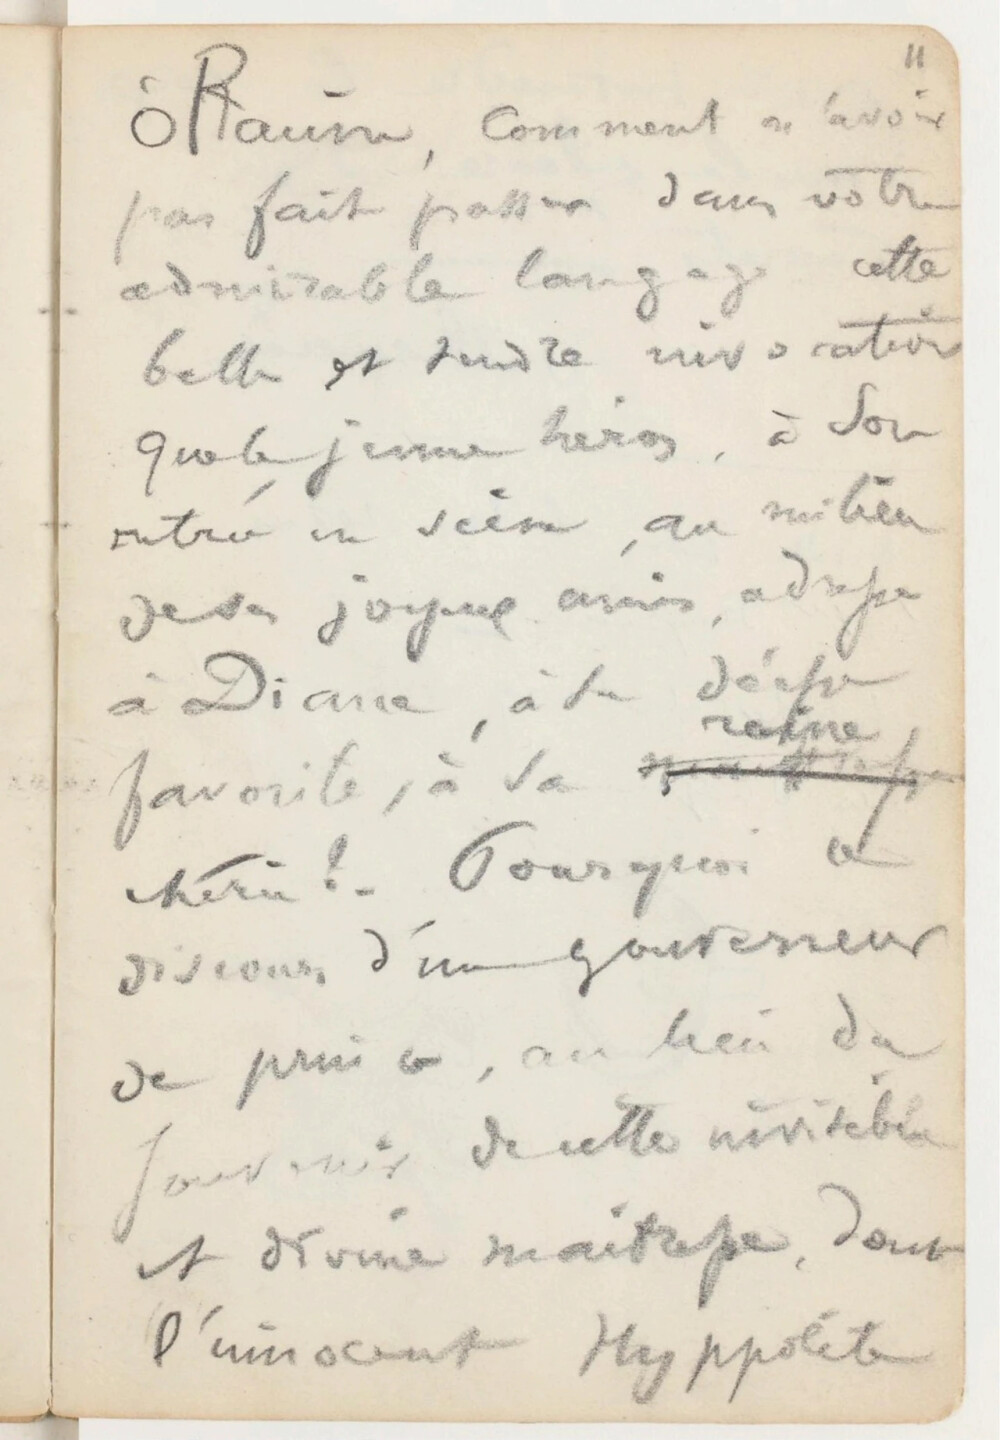 11
ô Racine, comment n'avoir
pas fait passer dans votre
admirable langage cette
belle et tendre invocation
que le jeune héros, à son
entrée en scène, au milieu
de ses joyeux amis, adresse
à Diane, à sa déesse
reine
favorite, à sa maîtresse
chérie ! - Pourquoi ce
discours d'un gouverneur
de prince, au lieu du
souvenir de cette invisible
et divine maîtresse, dont
l'innocent Hyppolite